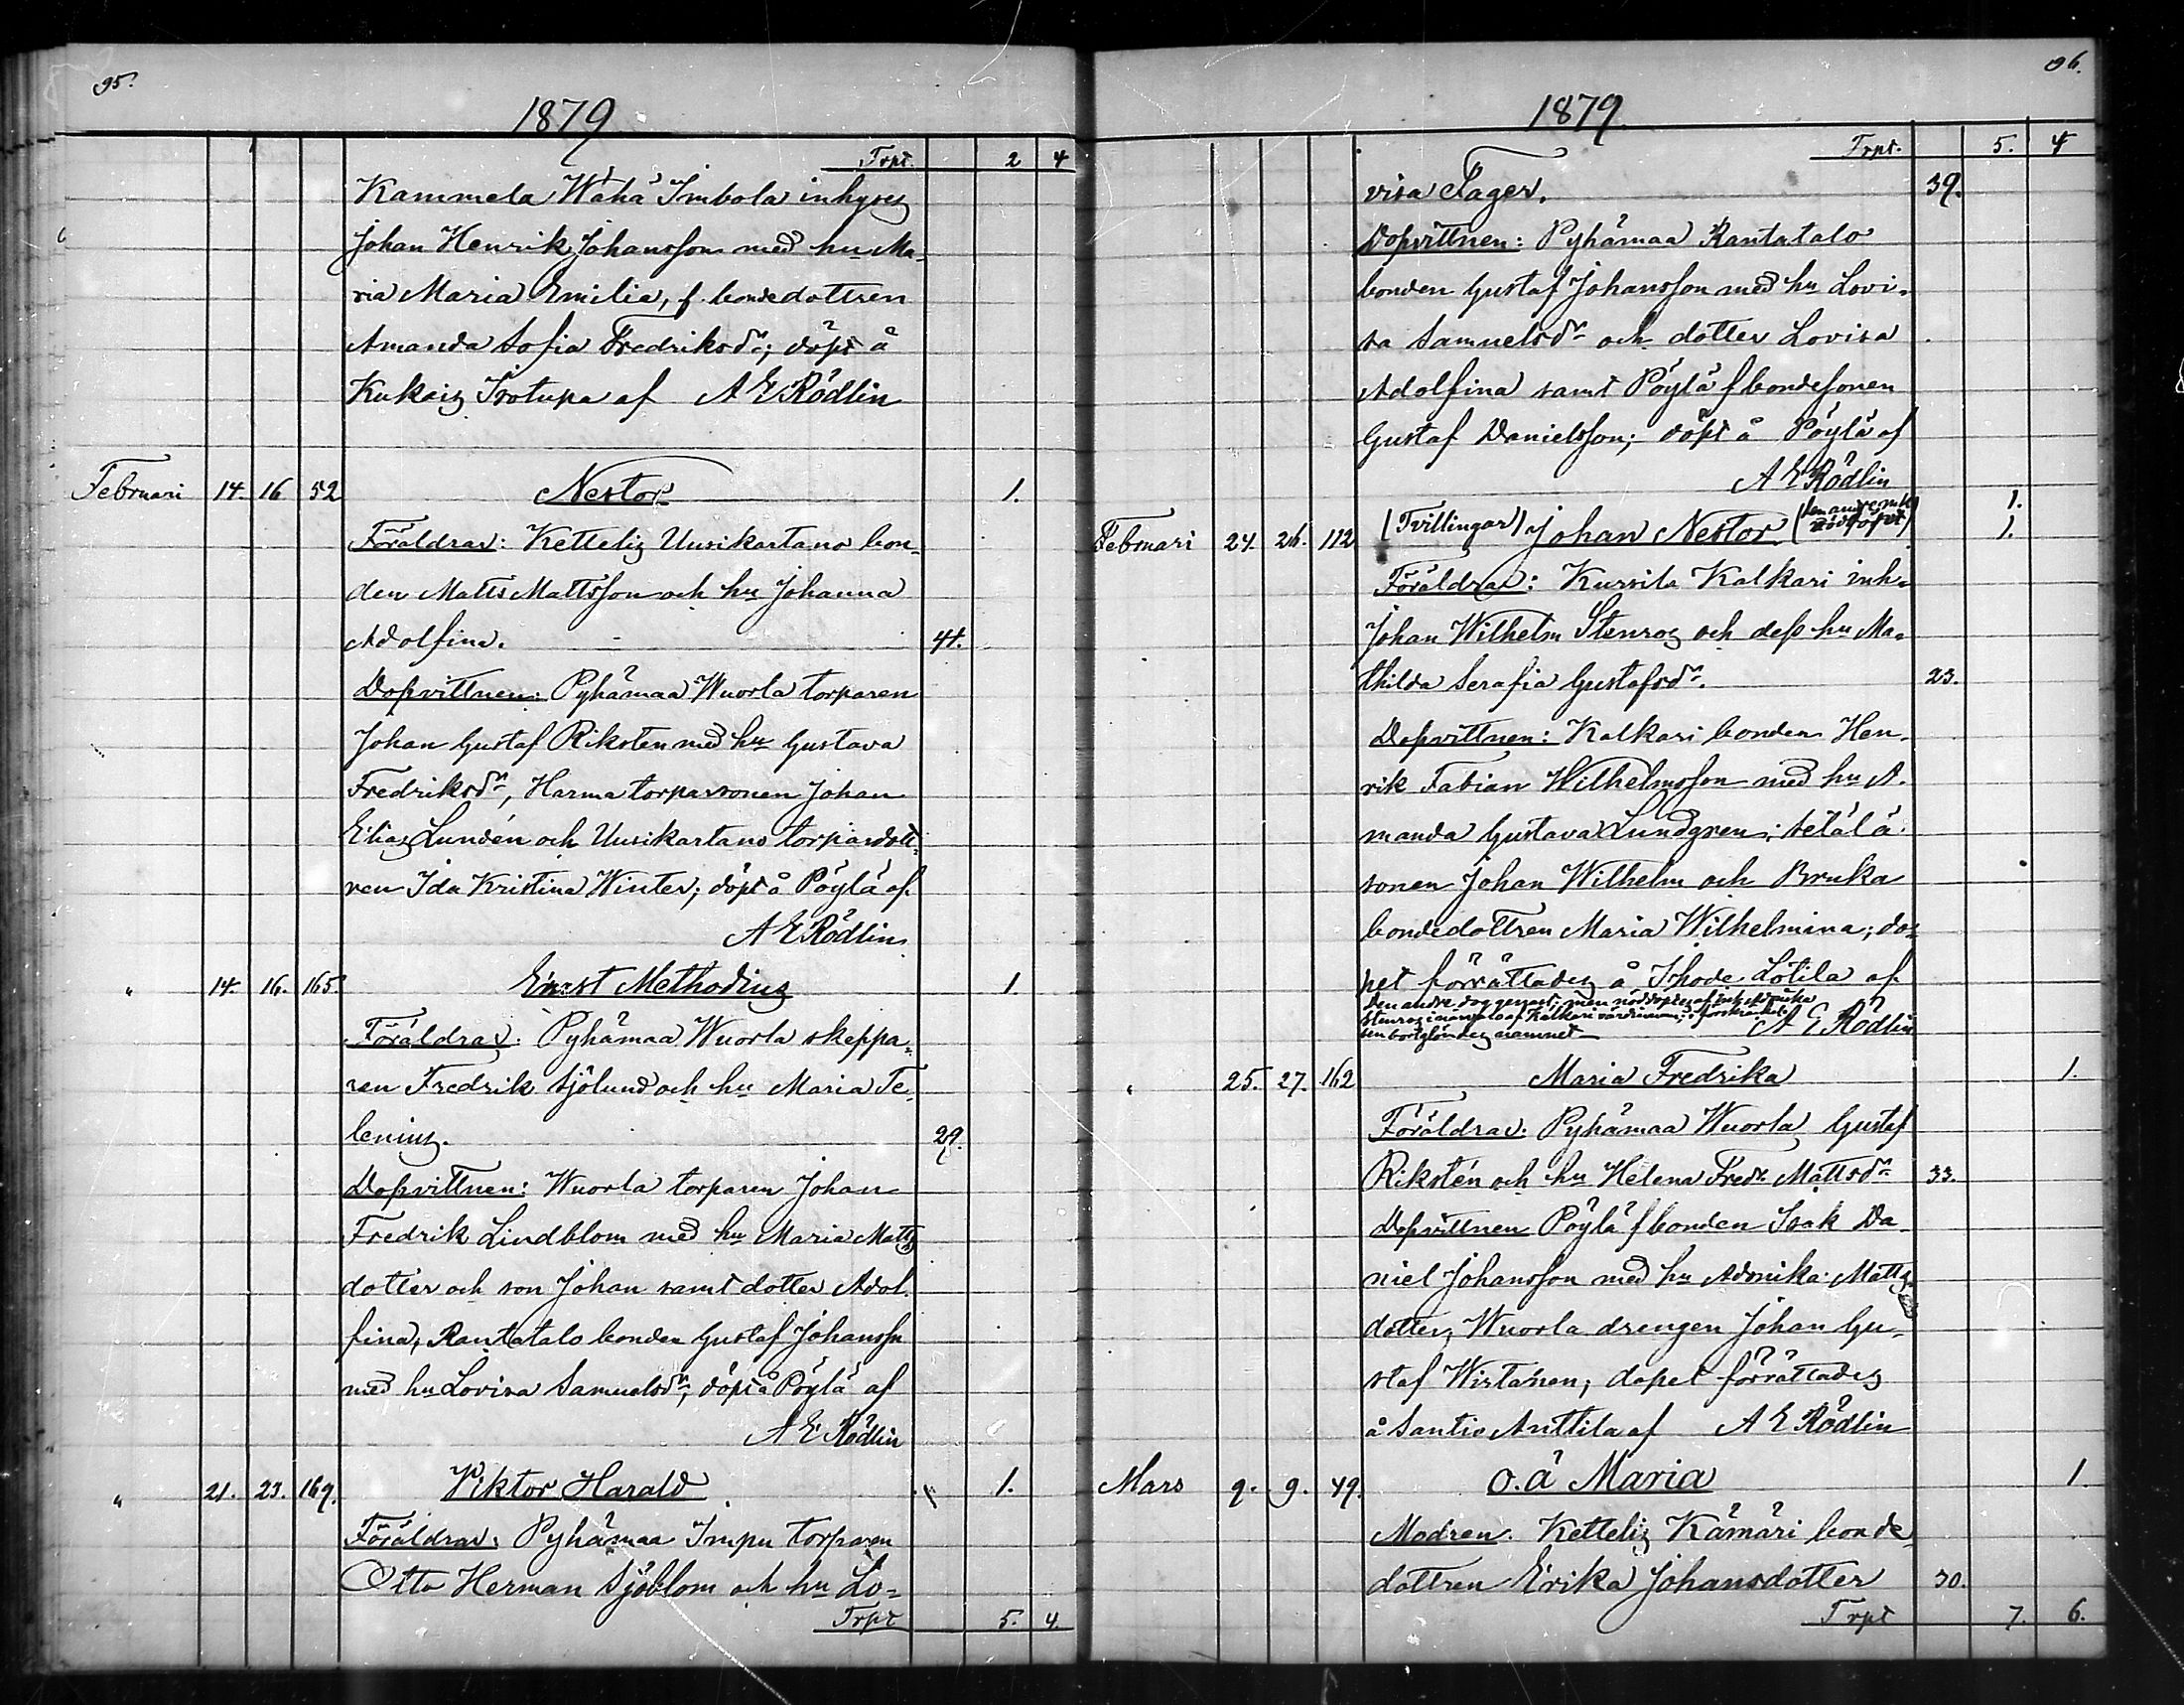 95.
1879
Trpt. 2 4
Kammela Wähä Imbola inhyses
Johan Henrik Johansson med hu Ma-
ria Maria Emilia, f. bondedottren
Amanda Sofia Fredriksdr; döpt å
Kukois Isotupa af A E Rödlin
Februari 14. 16 52 Nestor 1.
Föräldrar: Kettelis Uusikartano bon-
den Matts Mattsson och hu Johanna
Adolfina. 44.
Dopvittnen: Pyhämaa Wuorla torparen
Johan Gustaf Riksten med hu Gustava
Fredriksdr, Harma torparsonen Johan
Elias Lundén och Uusikartano torpardott-
ren Ida Kristina Winter; döpt å Pöylä af
A E Rödlin
" 14. 16. 165. Ernst Methodius 1.
Föräldrar: Pyhämaa Wuorla skeppa-
ren Fredrik Sjölund och hu Maria Te-
lenius. 29.
Dopvittnen: Wuorla torparen Johan
Fredrik Lindblom med hu Maria Matts
dotter och son Johan samt dotter Adol-
fina, Rantatalo bonden Gustaf Johansson
med hu Lovisa Samuelsdr; döpt å Pöylä af
A E Rödlin
" 21. 23. 169. Viktor Harald 1.
Föräldrar: Pyhämaa Impu torparen
Otto Herman Sjöblom och hu Lo-
Trpt 5. 4.
96.
1879.
Trpt. 5. 4
visa Fager. 39.
Dopvittnen: Pyhämaa Rantatalo
bonden Gustaf Johansson med hu Lovi-
sa Samuelsdr och dotter Lovisa
Adolfina samt Pöylä f bondesonen
Gustaf Danielsson; döpt å Pöylä af
A E Rödlin
1.
Februari 24. 26. 112 (Tvillingar) Johan Nestor (den andre 1.
Föräldrar: Kursila Kalkari inh-
Johan Wilhelm Stenros och dess hu Ma-
thilda Serafia Gustafsdr. 23.
Dopvittnen: Kalkari bonden Hen-
rik Fabian Wilhelmsson med hu A-
manda Gustava Lundgren; Setälä
sonen Johan Wilhelm och Bruka
bondedottren Maria Wilhelmina; do-
pet förrättades å Ihode Lötilä af
Den andre dog genast, men nöddöptes af
Stenros i närvaro af Kalkari värdinnan;
namnet A E Rödlin
" 25. 27. 162 Maria Fredrika 1.
Föräldrar: Pyhämaa Wuorla Gustaf
Rikstén och hu Helena Fredr. Mattsdr 33.
Dopvittnen Pöylä f bonden Isak Da-
niel Johansson med hu Adonika Matts-
dotter, Wuorla drengen Johan Gu-
staf Wirtanen; dopet förrättades
å Santio Anttila af A E Rödlin
Mars 9. 9. 49. o.ä Maria 1.
Modren: Kettelis Kämäri bonde
dottren Erika Johansdotter 30.
Trpt 7. 6.